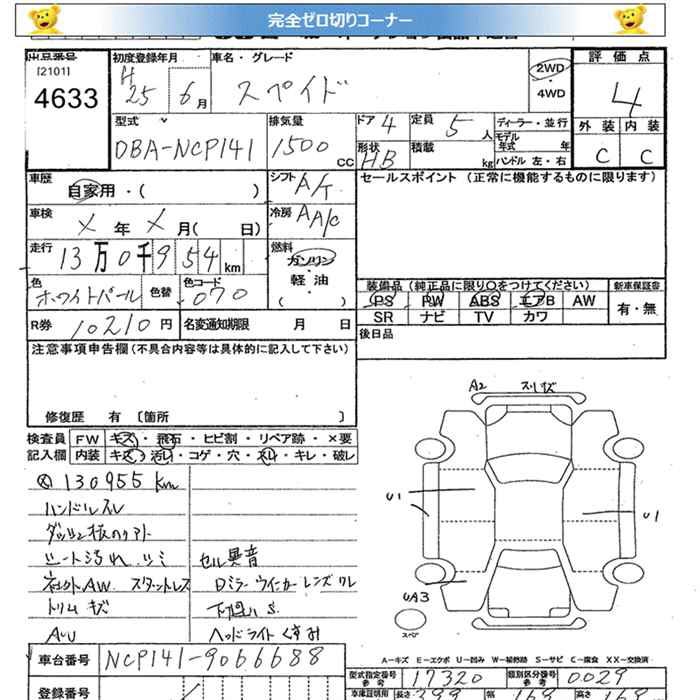 完全ゼロ切りコーナー
出品番号 初度登録年月 車名・グレード 評価点
[2101] H 25 6月 スペイド 2WD ・ 4WD 4
4633 外装 内装
型式 排気量 ドア 4 定員 5人 ディーラー・並行 C C
DBA-NCP141 1500 CC 形状 HB 積載 kg モデル年式 年式 ハンドル 左・右
車歴 自家用・( ) シフト A/T セールスポイント (正常に機能するものに限ります)
車検 X年 X月( 日) 冷房 AA/C
走行 13万0千954km 燃料 ガソリン
軽油
( )
色 ホワイトパール 色替 色コード 070 装備品 (純正品に限り○をつけてください) 新車保証書
PS PW ABS エアB AW 有・無
R券 10210円 名変通知期限 月 日 SR ナビ TV カワ
注意事項申告欄(不具合内容等は具体的に記入して下さい) 後日品
修復歴 有 [箇所 ]
A2 スリキズ
検査員 FW キズ・飛石・ヒビ割・リペア跡・×要
記入欄 内装 キズ・汚れ・コゲ・穴・スレ・キレ・破レ
130955 km
ハンドルスレ
U1 U1
シート汚れ シミ セル異音
社外AW スタットレス Dミラーウインカーレンズワレ
トリムキズ 下廻りS
UA3
スペア
AU ヘッドライトくすみ
A-キズ E-エクボ U-凹み W-補修跡 S-サビ C-腐食 XX-交換済
車台番号 NCP141-9066688
型式指定番号 参考 17320 類別区分番号 参考 0029
登録番号 車庫証明用 参考 長さ 399 幅 169 高さ 159